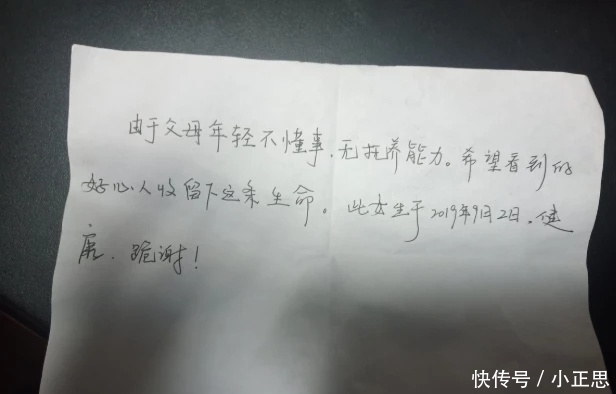 由于父母年轻不懂事,无抚养能力。希望看到的
好心人收留下这条生命。此女生于2019年9月2日,健
康,跪谢!
快传号/小正思